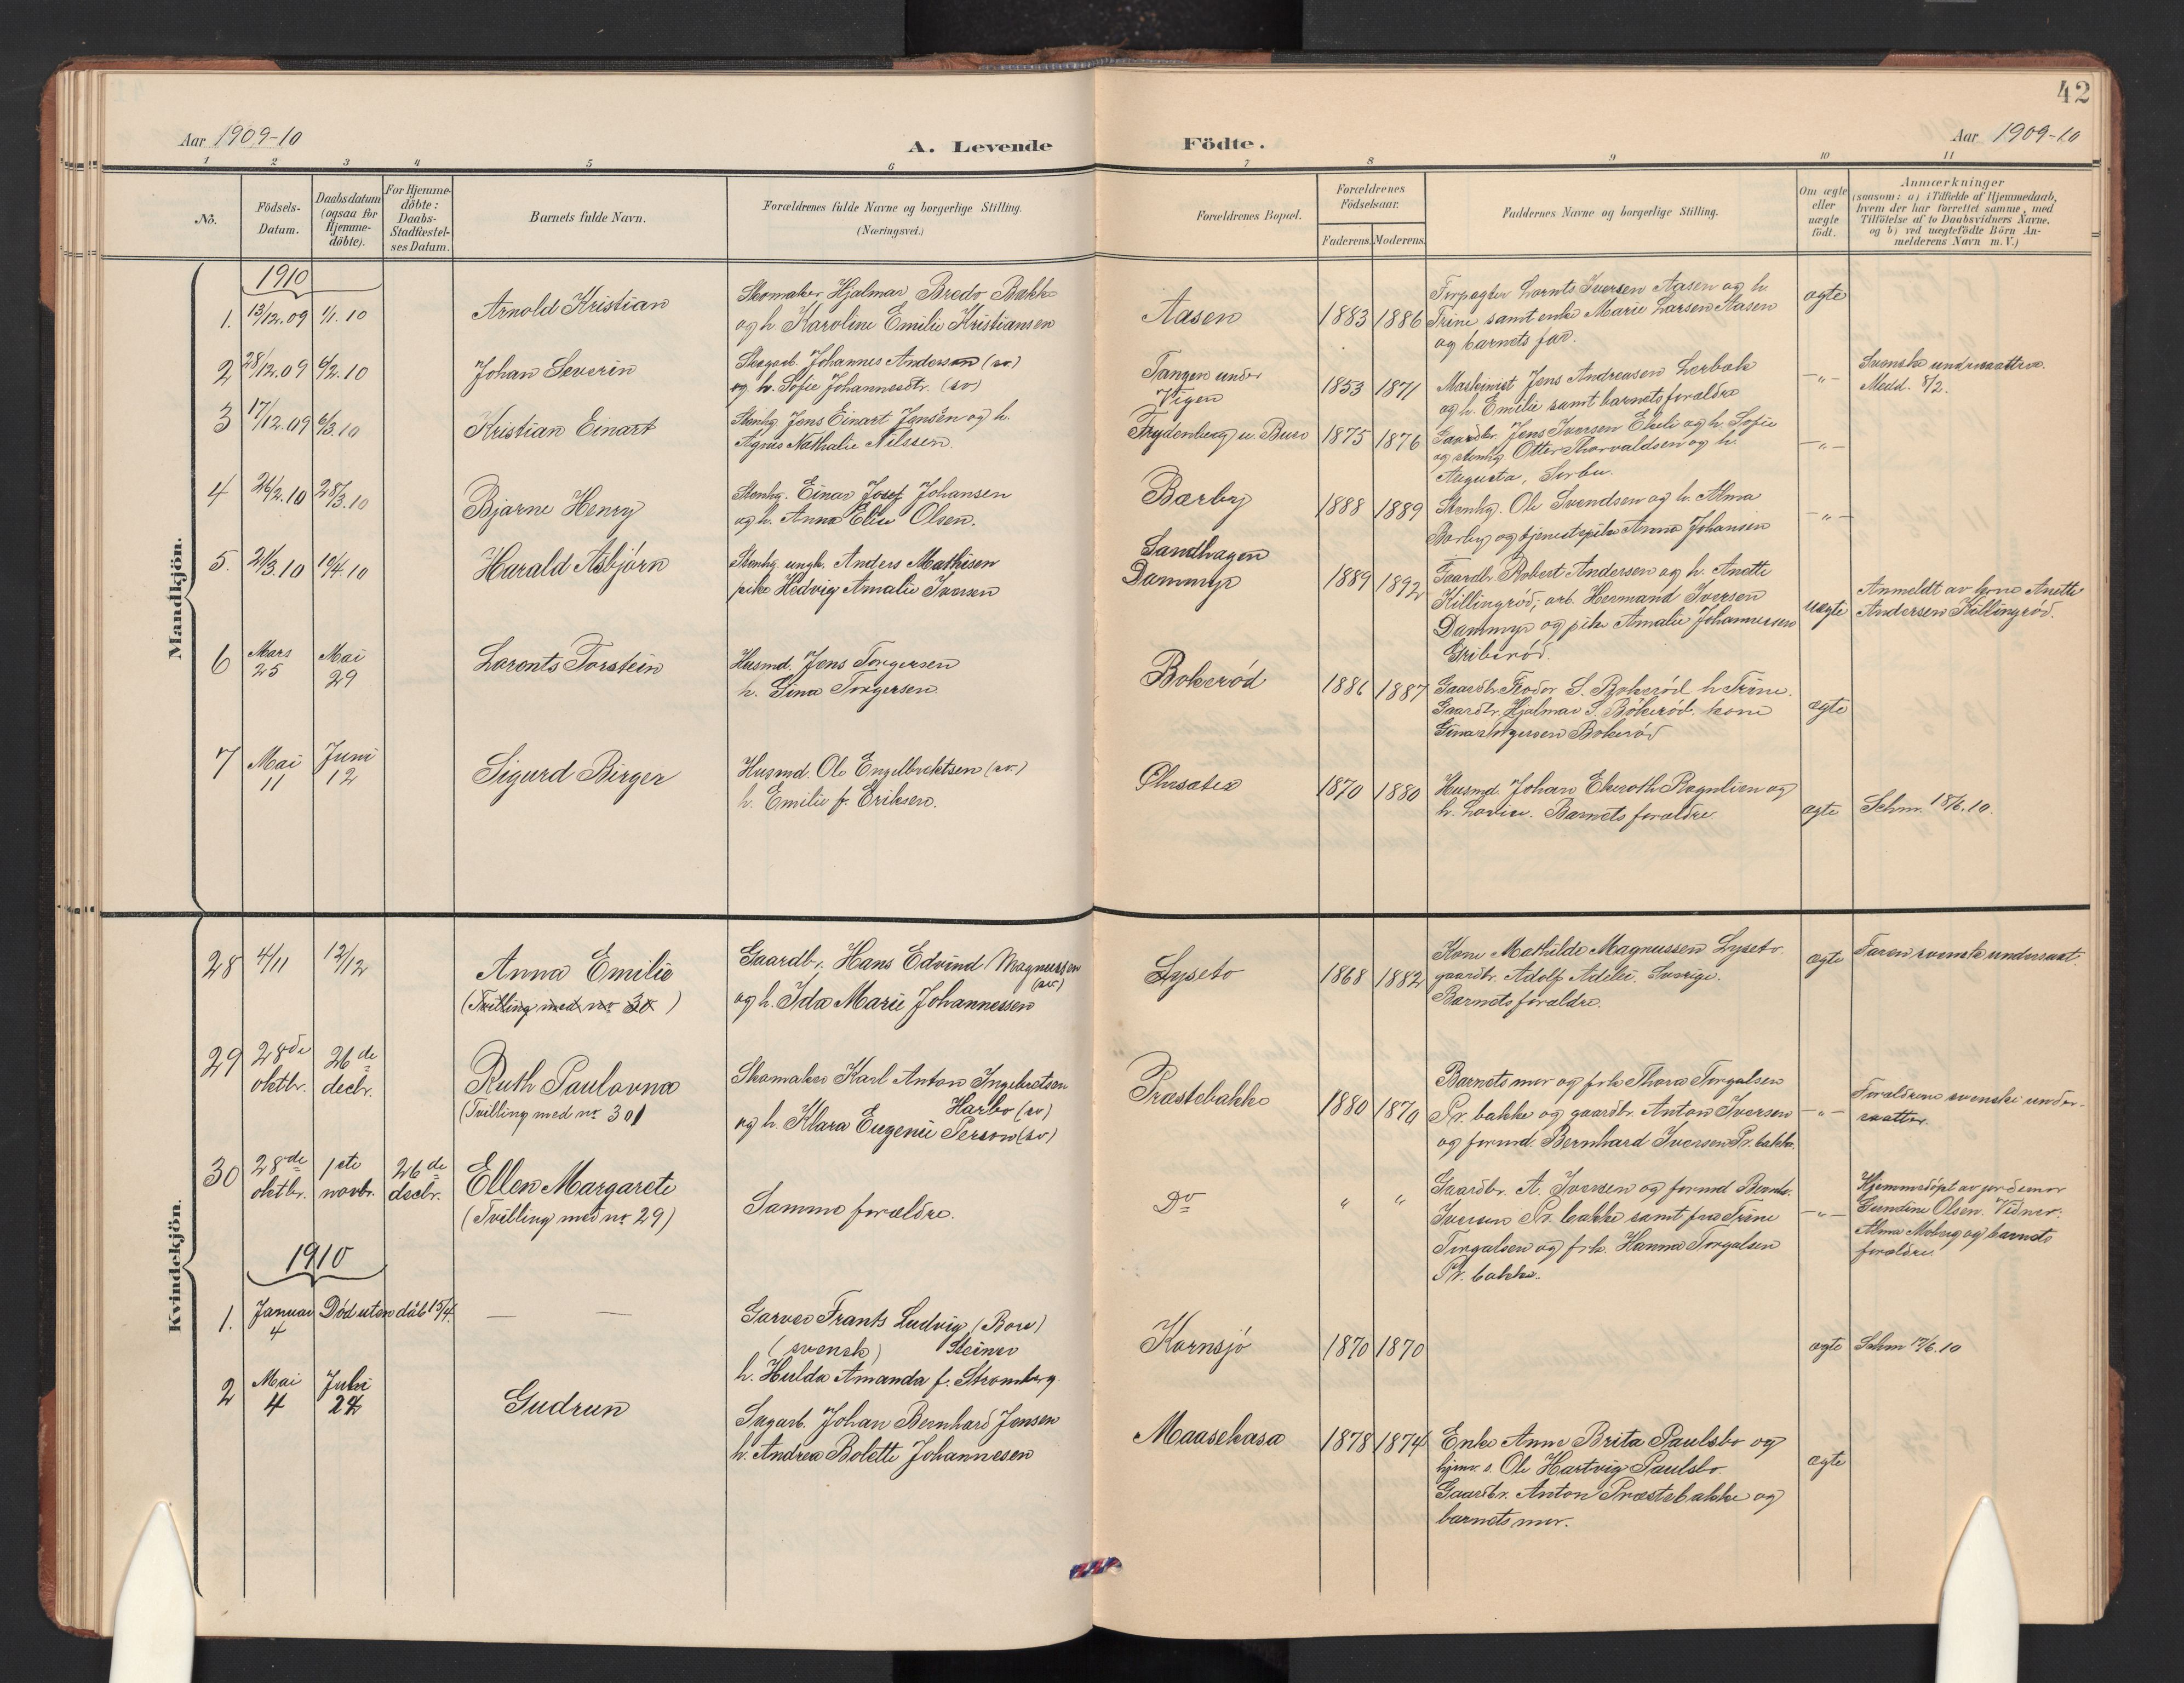 42
Aar 1909-10
A. Levende
Födte.
Aar 1909-10
1 2 3 4 5 6 7 8 9 10 11
Nö.
Födsels-Datum.
Daabsdatum (ogsaa for Hjemme-döbte).
For Hjemme-döbte: Daabs-Stadfæstel-ses Datum.
Barnets fulde Navn.
Forældrenes fulde Navne og borgerlige Stilling.
(Næringsvei.)
Forældrenes Bopæl.
Forældrenes Födselsaar.
Faderens. Moderens.
Faddernes Navne og borgerlige Stilling.
Om ægte eller uægte födt.
Anmærkninger
(saasom: a) i Tilfælde af Hjemmedaab, hvem der har forrettet samme, med Tilföielse af to Daabsvidners Navne, og b) ved uægtefödte Börn An-melderens Navn m. V.)
Mandkjön.
1910
1. 13/12.09 1/1.10 Arnold Kristian
Skomaker Hjalmar Bredo Bakke
og h. Karoline Emilie Kristiansen
Aasen 1883 1886
Forpagter Lornts Iversen Aasen og h.
Trine samt enke Marie Larsen Aasen
og barnets far.
ægte
2 28/12.09 6/2.10 Johan Severin
Skogsarb. Johannes Anderson (sv.)
og h. Sofie Johannesdtr. (sv)
Tangen under
Vigen
1853 1871
Maskinist Jens Andreasen Lerbak
og h. Emilie samt barnets forældre
-"-
Svenske undersaatter.
Medd. 8/2.
3 17/12.09 6/3.10 Kristian Einart
Stenhg. Jens Einart Jensen og h.
Agnes Nathalie Nilssen.
Frydenberg u. Buer 1875 1876
Gaardbr. Jens Iversen Ekeli og h. Sofie
og stenhg. Otter Thorvaldsen og h.
Augusta, Sorbu.
-"-
4 26/2.10 28/3.10 Bjarne Henry
Stenhg. Einar Josef Johansen
og h. Anna Elise Olsen.
Bærby 1888 1889
Stenhg. Ole Svendsen og h. Alma
Bærby og tjenestepike Anna Johansen
-"-
5. 21/3.10 10/4.10 Harald Asbjörn
Stenhg. ungk. Anders Mathisen
pike Hedvig Amalie Iversen
Sandhagen
Dammyr
1889 1892
Gaardbr. Robert Andersen og h. Anette
Killingröd; arb. Hermand Iversen
Dammyr og pike Amalie Johannessen
Griberöd.
uægte
Anmeldt av kone Anette
Andersen Killingröd.
6 Mars 25 Mai 29 Lorents Torstein
Husmd. Jens Torgersen
h. Gina Torgersen
Bokeröd 1886 1887
Gaardbr. Frodor S. Bokeröd h Trine.
Gaardbr. Hjalmar S. Bökeröd. kone
Gina Torgersen Bokeröd
ægte
7 Mai 11 Juni 12 Sigurd Birger
Husmd. Ole Engelbrektsen (sv.)
h. Emilie f. Eriksen.
1870 1880
Husmd. Johan Ekeroth Rognlien og
h. Lovise. Barnets forældre.
ægte
Schm. 18/6.10.
Kvindekjön.
28 4/11 12/12 Anna Emilie
(Tvilling med no 30)
Gaardb. Hans Edvind Magnussen
(sv.)
og h. Ida Marie Johannessen
Lyseto 1868 1882
Kone Mathilde Magnussen Lyseto
gaardbr. Adolf Adelii, Sverige.
Barnets forældre.
ægte
Faren svensk undersaat.
29 28de oktbr. 26de decbr. Ruth Paulovna
(Tvilling med no 30)
Skomaker Karl Anton Ingebretsen
Harbo (sv)
og h. Klara Eugenie Person (sv)
Præstebakke 1880 1879
Barnets mor og frk Thora Torgalsen
Pr. bakke og gaardbr. Anton Iversen
og formd. Bernhard Iversen Pr. bakke.
-"-
Forældrene svenske under-
saatter.
30 28de oktbr. 1ste novbr. 26de decbr. Ellen Margarete
(Tvilling med no 29)
Samme forældre.
Do " "
Gaardbr. A. Iversen og formd Bernh.
Iversen Pr. bakke samt frøk Trine
Torgalsen og frk. Hanna Torgalsen
Pr. bakke.
-"-
Hjemmedöpt av jordemor
Gundine Olsen. Vidner:
Alma Moberg og barnets
forældre.
1910
1. Januar 4 Död uten dåb 15/4. — —
Garver Frants Ludvig (Bore)
(svensk) Steiner
h. Hulda Amanda f. Stromberg.
Kornsjö 1870 1870
ægte
Schm 17/6.10
2 Mai 4 Juli 24 Gudrun
Sagarb. Johan Bernhard Jensen
h. Andrea Bolette Johannesen
Maasekasa 1878 1874
Enke Anne Brita Paulsbo og
hjmv. s. Ole Hartvig Paulsbo.
Gaardbr. Anton Præstebakke og
barnets mor.
ægte